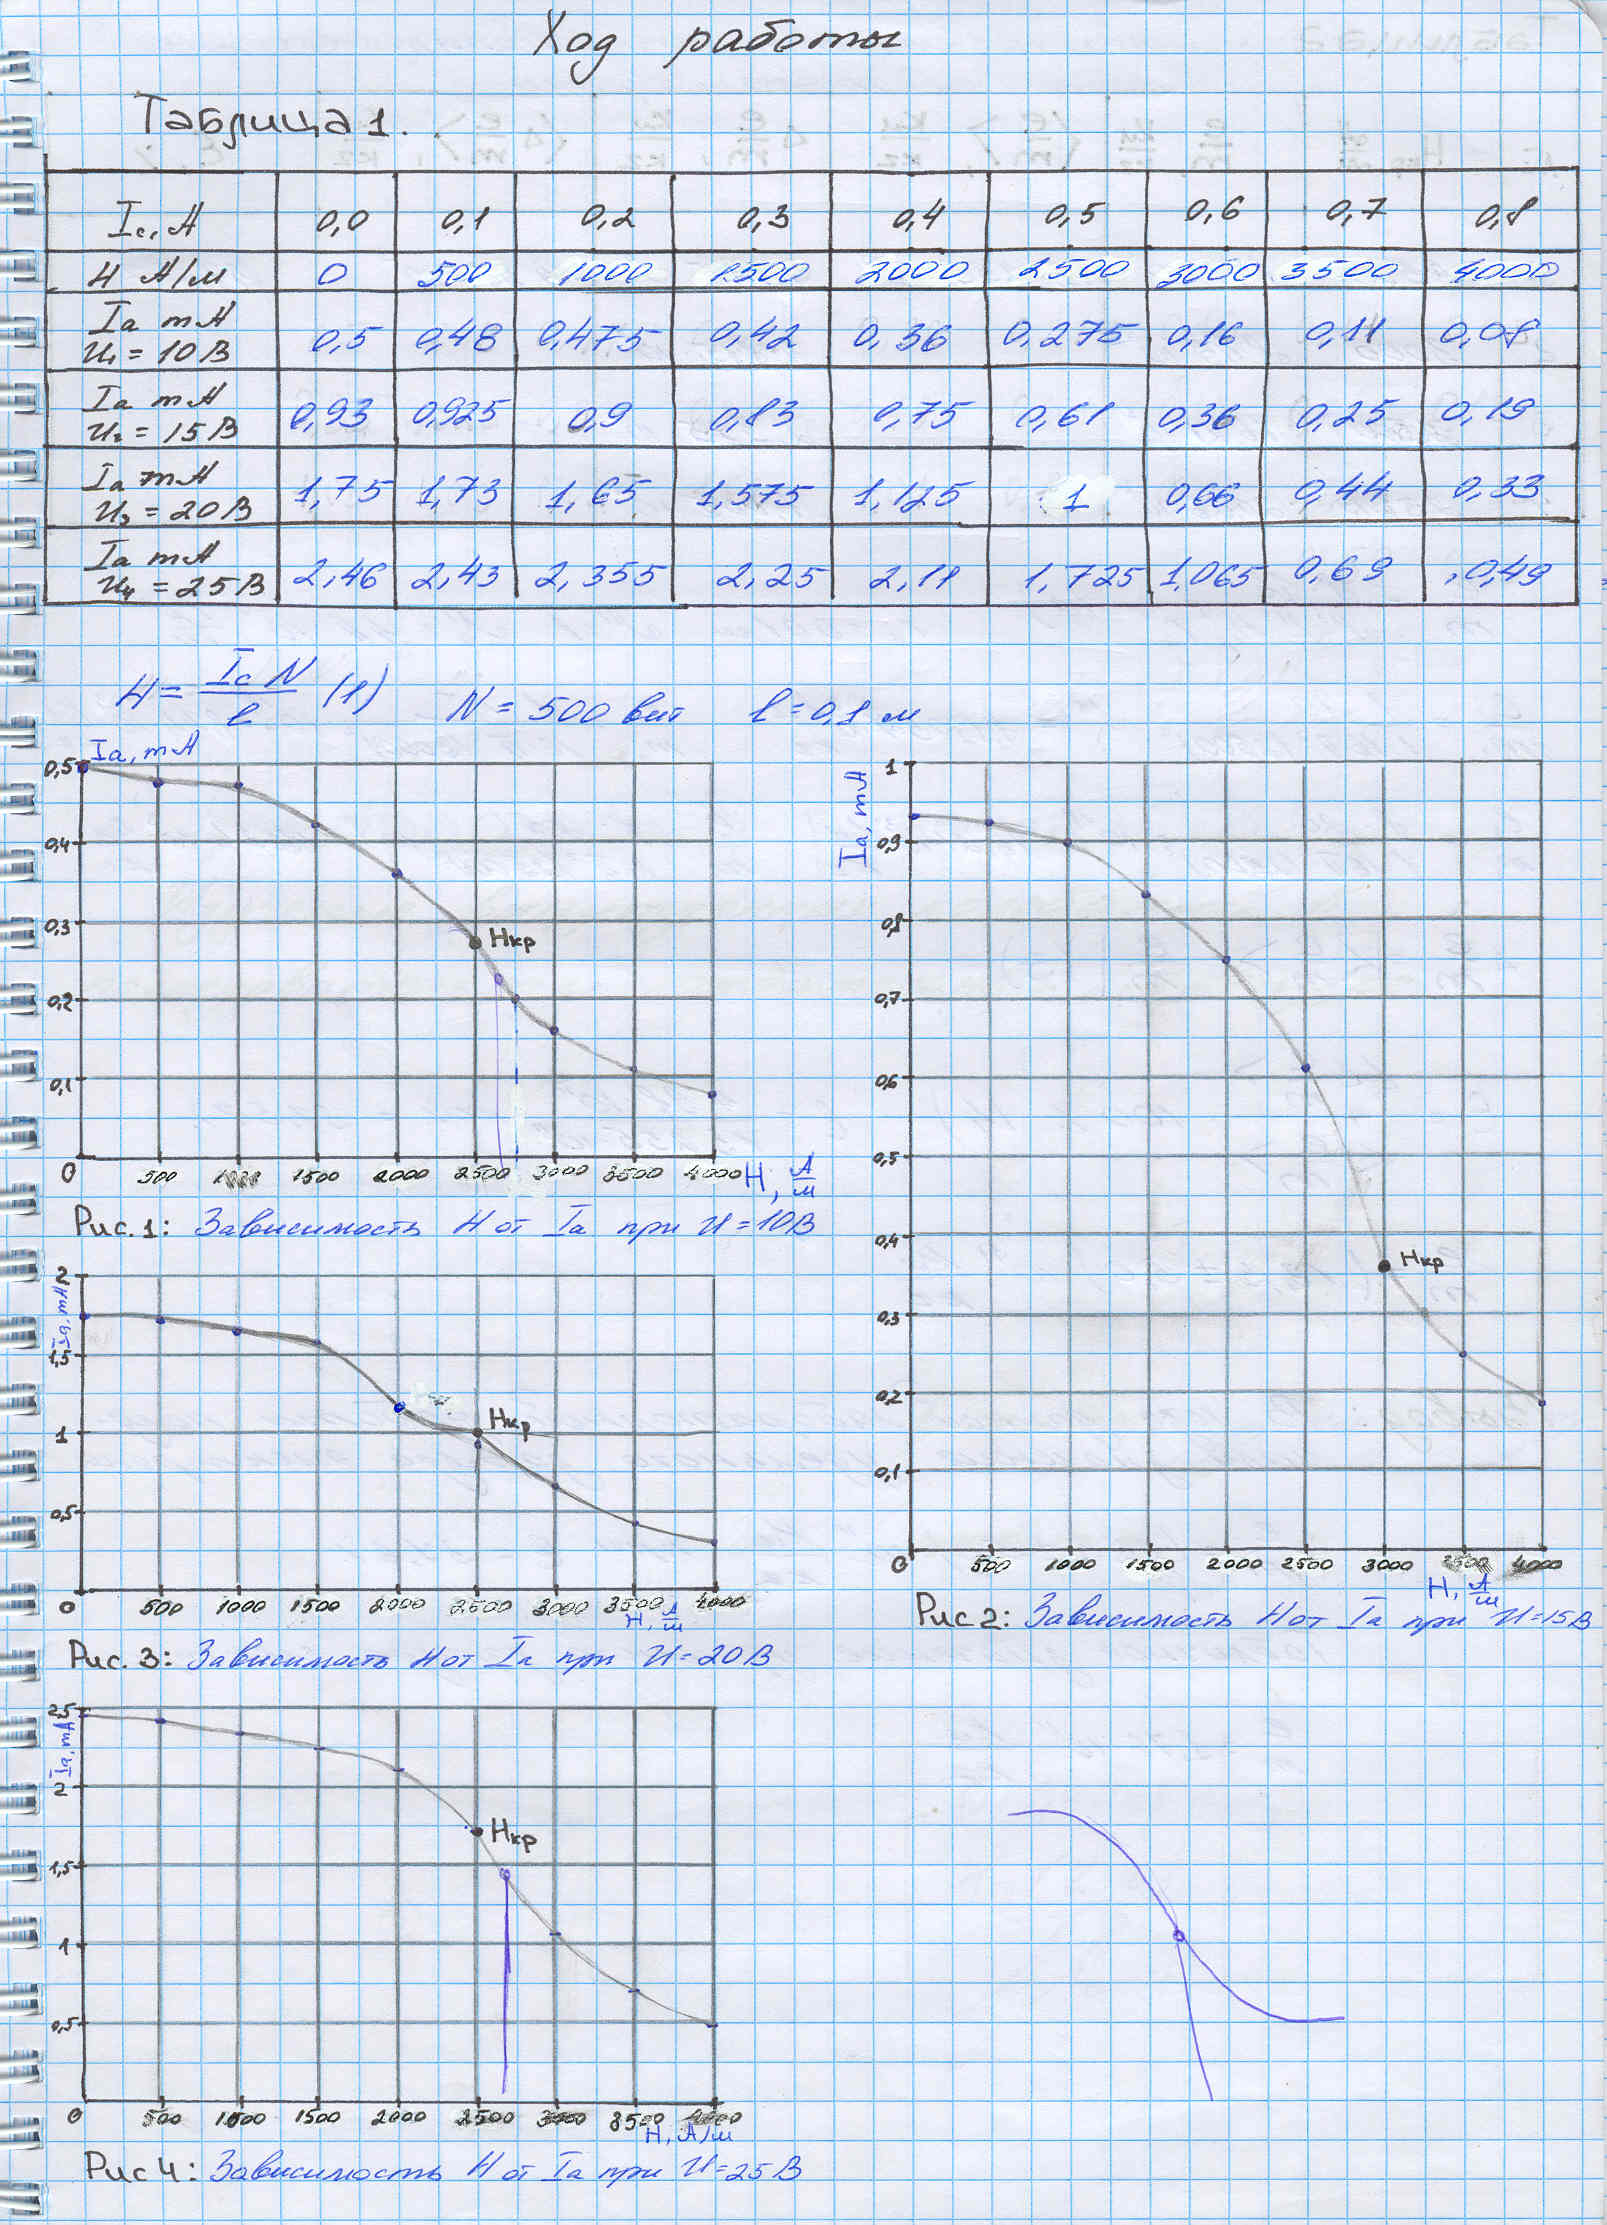 Ход работы
Таблица 1.
Iс, А 0,0 0,1 0,2 0,3 0,4 0,5 0,6 0,7 0,8
H А/м 0 500 1000 1500 2000 2500 3000 3500 4000
Iа mA U₁ = 10 В 0,5 0,48 0,475 0,42 0,36 0,275 0,16 0,11 0,08
Iа mA U₂ = 15 В 0,93 0,925 0,9 0,83 0,75 0,61 0,36 0,25 0,19
Iа mA U₃ = 20 В 1,75 1,73 1,65 1,575 1,125 1 0,66 0,44 0,33
Iа mA U₄ = 25 В 2,46 2,43 2,355 2,25 2,11 1,725 1,065 0,69 0,49
H = Iс N / l (1) N = 500 вит l = 0,1 м
Iа, mA
0,5
0,4
0,3
0,2
0,1
Нкр
0 500 1000 1500 2000 2500 3000 3500 4000 H, А/м
Рис. 1: Зависимость H от Iа при U = 10 В
Iа, mA
1
0,9
0,8
0,7
0,6
0,5
0,4
0,3
0,2
0,1
Нкр
0 500 1000 1500 2000 2500 3000 3500 4000
H, А/м
Рис 2: Зависимость H от Iа при U = 15 В
Iа, mA
2
1,5
1
0,5
Нкр
0 500 1000 1500 2000 2500 3000 3500 4000
H, А/м
Рис. 3: Зависимость H от Iа при U = 20 В
Iа, mA
2,5
2
1,5
1
0,5
Нкр
0 500 1000 1500 2000 2500 3000 3500 4000
H, А/м
Рис 4: Зависимость H от Iа при U = 25 В